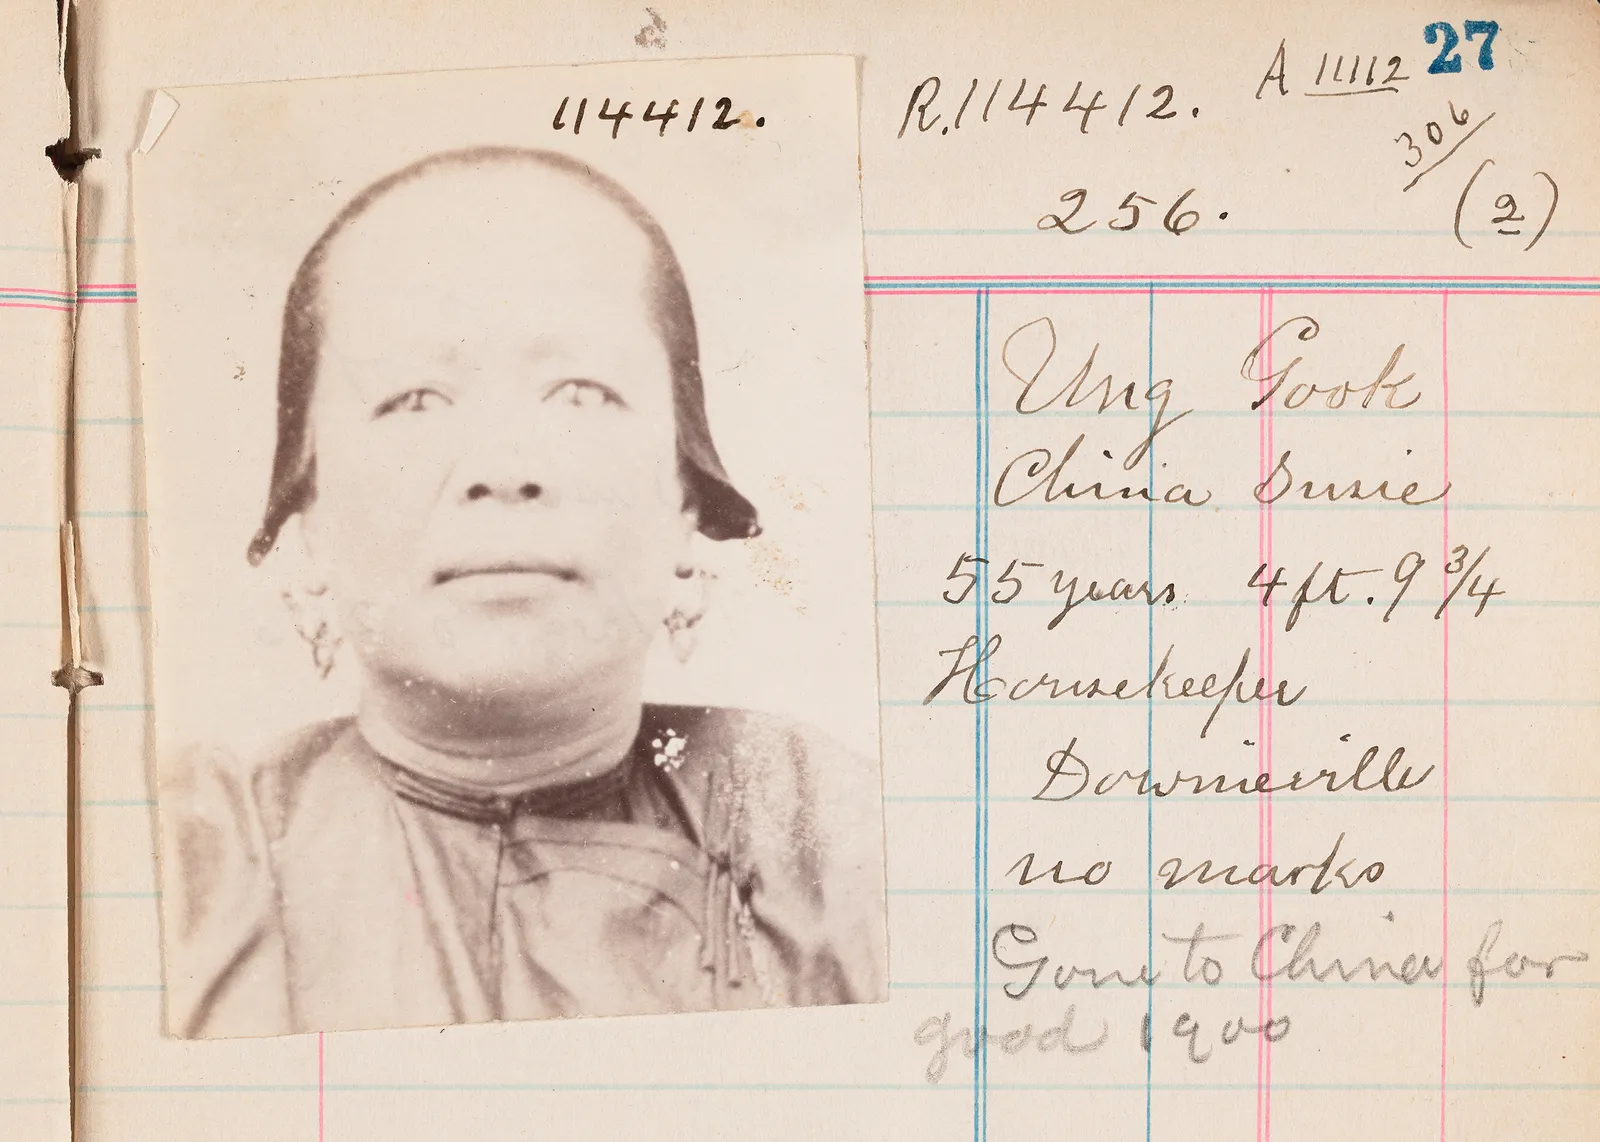 114412.
R.114412.
A 11112
27
306/
256.
(2)
Ung Gook
China Susie
55 years 4 ft. 9 3/4
Housekeeper
Downieville
no marks
Gone to China for
good 1900